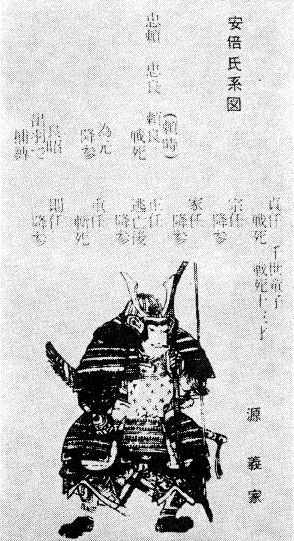 安倍氏系図
忠頼 忠良 頼良
(頼時)
戦死
為元
降参
良昭
出羽で
捕縛
貞任
戦死
千世童子
戦死十三才
宗任
降参
家任
降参
正任
逃亡後
降参
重任
斬死
則任
降参
源義家